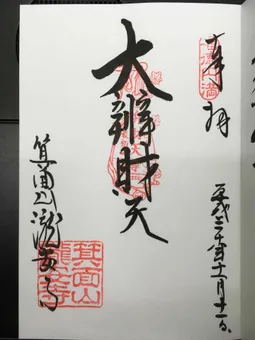 奉拝
大辨財天
平成三十年十一月十一日
箕面山瀧安寺
箕面山
瀧安寺